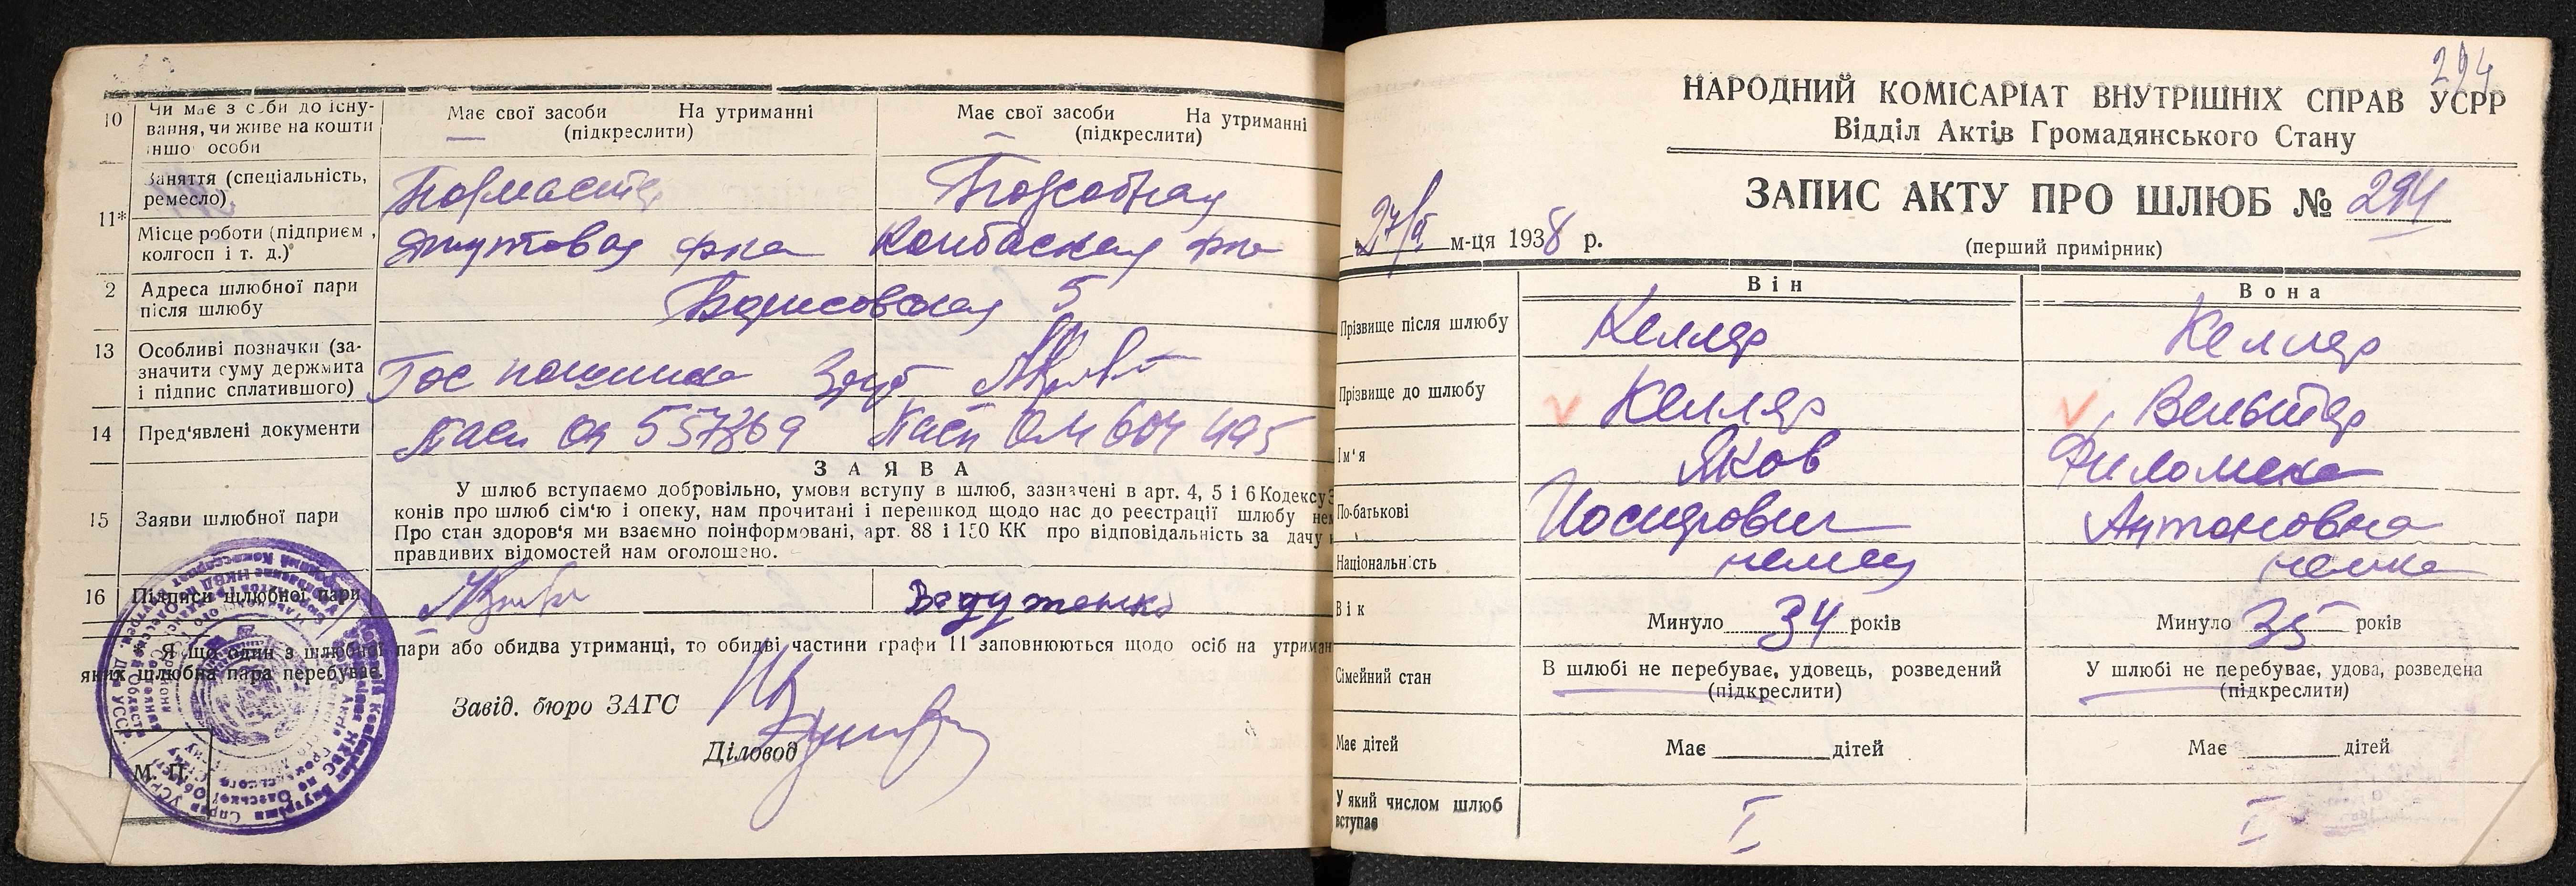 10
Чи має з с.би до існу-
вання, чи живе на кошти
іншо особи
Має свої засоби На утриманні
(підкреслити)
Має свої засоби На утриманні
(підкреслити)
11*
Заняття (спеціальність,
ремесло)
Подсобная
Місце роботи (підприєм ,
колгосп і т. д.)
джутовая ф-ка
ф-ка
2
Адреса шлюбної пари
після шлюбу
Борисовская 5
13
Особливі позначки (за-
значити суму держмита
і підпис сплатившого)
Гос пошлина
14
Пред'явлені документи
557369
Пасп ОМ 604 495
ЗАЯВА
15
Заяви шлюбної пари
У шлюб вступаємо добровільно, умови вступу в шлюб, зазначені в арт. 4, 5 і 6 Кодексу З
конів про шлюб сім'ю і опеку, нам прочитані і перешкод щодо нас до реєстрації шлюбу нем
Про стан здоров'я ми взаємно поінформовані, арт. 88 і 150 КК про відповідальність за дачу н
правдивих відомостей нам оголошено.
16
Підписи шлюбної пари
Якщо один з шлюбної пари або обидва утриманці, то обидві частини графи 11 заповнюються щодо осіб на утриман
яких шлюбна пара перебуває.
Завід. бюро ЗАГС
Діловод
М. П.
294
НАРОДНИЙ КОМІСАРІАТ ВНУТРІШНІХ СПРАВ УСРР
Відділ Актів Громадянського Стану
ЗАПИС АКТУ ПРО ШЛЮБ № 294
м-ця 1938 р.
(перший примірник)
Він
Вона
Прізвище після шлюбу
Келлер
Келлер
Прізвище до шлюбу
Келлер
Вельтер
Ім'я
Яков
Филомена
По-батькові
Иосифович
Антоновна
Національність
немец
немка
Вік
Минуло 34 років
Минуло 35 років
Сімейний стан
В шлюбі не перебуває, удовець, розведений
(підкреслити)
У шлюбі не перебуває, удова, розведена
(підкреслити)
Має дітей
Має дітей
Має дітей
У який числом шлюб
вступає
I
I